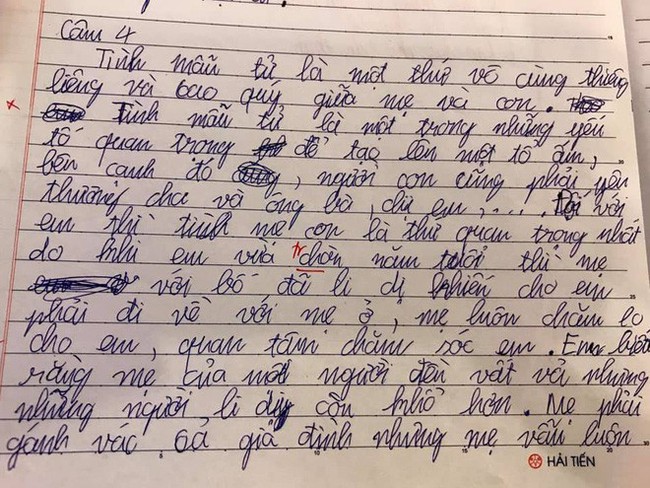 Câu 4
Tình mẫu tử là một thứ vô cùng thiêng
liêng và cao quý giữa mẹ và con.
Tình mẫu tử là một trong những yếu
tố quan trọng để tạo lên một tổ ấm,
bên cạnh đó, người con cũng phải yêu
thương cha và ông bà, chị em,.... Đối với
em thì tình mẹ con là thứ quan trọng nhất
do khi em vừa tr chòn năm tuổi thì mẹ
với bố đã li dị khiến cho em
phải đi về với mẹ ở, mẹ luôn chăm lo
cho em, quan tâm chăm sóc em. Em
rằng mẹ của một người đều vất vả nhưng
những người li dị còn khổ hơn. Mẹ phải
gánh vác cả gia đình nhưng mẹ vẫn luôn
HẢI TIẾN